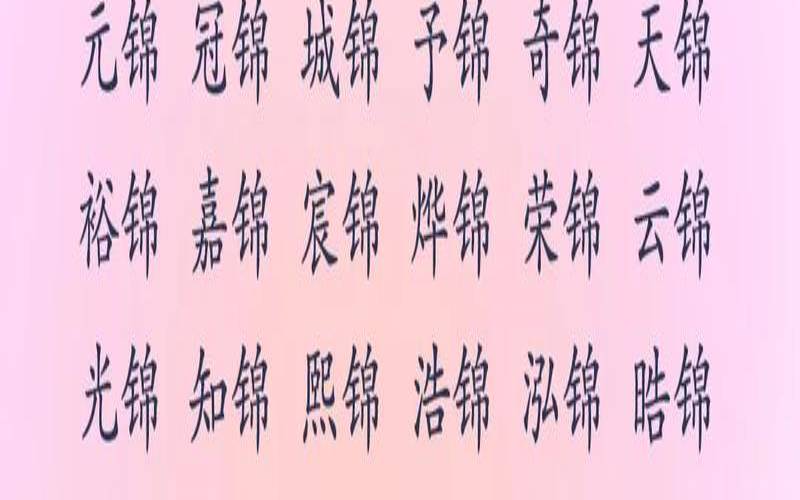 元锦 冠锦 城锦 予锦 奇锦 天锦
裕锦 嘉锦 宸锦 烨锦 荣锦 云锦
光锦 知锦 熙锦 浩锦 泓锦 皓锦